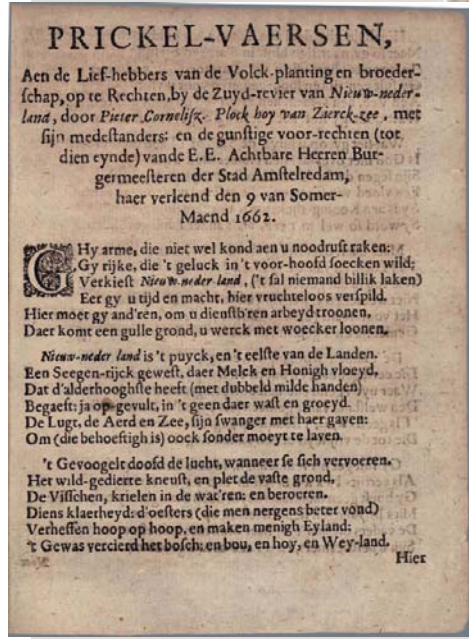 PRICKEL-VAERSEN,
Aen de Lief-hebbers van de Volck-planting en broeder-
schap, op te Rechten, by de Zuyd-revier van Nieuw-neder-
land, door Pieter Cornelisz. Plock hoy van Zierck-zee, met
sijn medestanders: en de gunstige voor-rechten (tot
dien eynde) vande E.E. Achtbare Heeren Bur-
germeesteren der Stad Amstelredam,
haer verleend den 9 van Somer-
Maend 1662.
GHy arme, die niet wel kond aen u noodruft raken:
Gy rijke, die 't geluck in 't voor-hoofd soecken wild;
Verkiest Nieuw-neder-land, ('t sal niemand billik laken)
Eer gy u tijd en macht, hier vruchteloos verspild.
Hier moet gy and'ren, om u dienstb'ren arbeyd troonen,
Daer komt een gulle grond, u werck met woecker loonen.
Nieuw-neder land is 't puyck, en 't eelste van de Landen.
Een Seegen-rijck gewest, daer Melck en Honigh vloeyd,
Dat d'alderhooghste heeft (met dubbeld milde handen)
Begaeft: ja op-gevult, in 't geen daer wast en groeyd.
De Lugt, de Aerd en Zee, sijn swanger met haer gaven:
Om (die behoeftigh is) oock sonder moeyt te laven.
't Gevoogelt doofd de lucht, wanneer se sich vervoeren.
Het wild-gedierte kneust, en plet de vaste grond,
De Visschen, krielen in de wat'ren: en beroeren.
Diens klaerheyd: d'oesters (die men nergens beter vond)
Verheffen hoop op hoop, en maken menigh Eyland:
't Gewas vercierd het bosch: en bou, en hoy, en Wey-land.
Hier